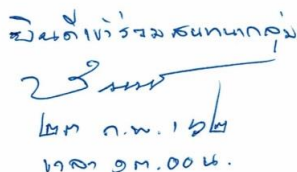 ยินดีเข้าร่วมสนทนากลุ่ม
๒๓ ก.พ. ๖๒
เวลา ๑๓.00 น.